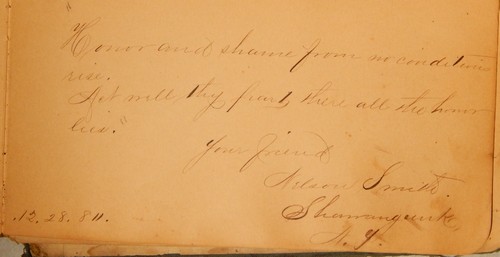 "Honor and shame from no condition
rise.
Act well thy part, there all the honor
lies."
Your friend
Nelson Smith.
Shawangunk,
N.Y.
.12.28.80.